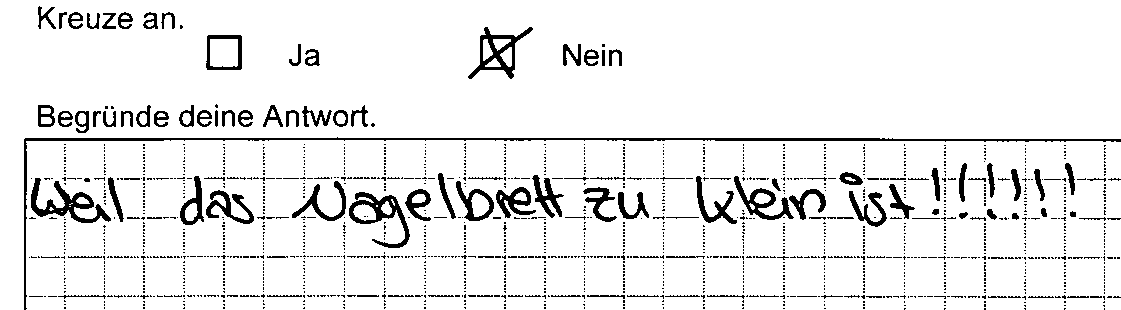 Kreuze an.
Ja Nein
Begründe deine Antwort.
Weil das Nagelbrett zu klein ist!!!!!!